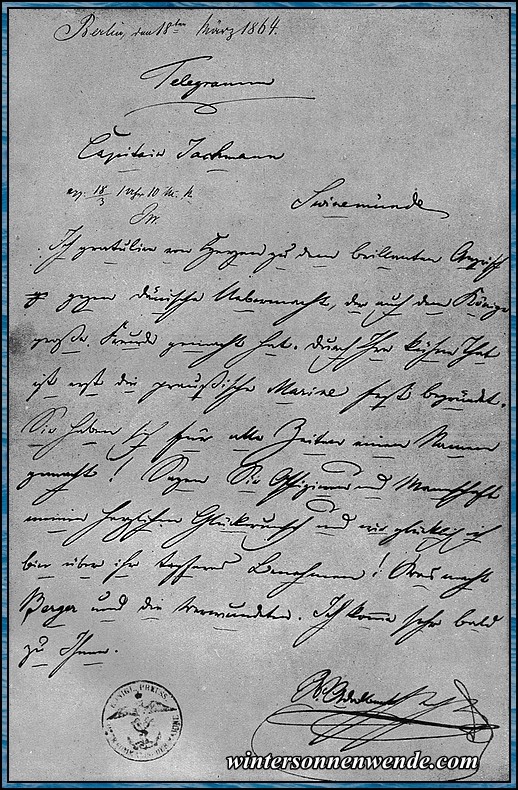 Berlin, den 18ten März 1864.
Telegramm
Capitain Jachmann
18/3 1 Uhr 10 M.
Swinemünde
Ich gratulire von Herzen zu dem brillanten Angriff
gegen dänische Uebermacht, der auch dem Könige
große Freude gemacht hat. Durch Ihre kühne That
ist erst die preußische Marine fest begründet.
Sie haben sich für alle Zeiten einen Namen
gemacht! Sagen Sie Offizieren und Mannschaft
meinen herzlichen Glückwunsch und wie glücklich ich
bin über ihr tapferes Benehmen! Was macht
Berger und die Verwundeten. Ich komme sehr bald
zu Ihnen.
Adalbert
KÖNIGL. PREUSS.
wintersonnenwende.com